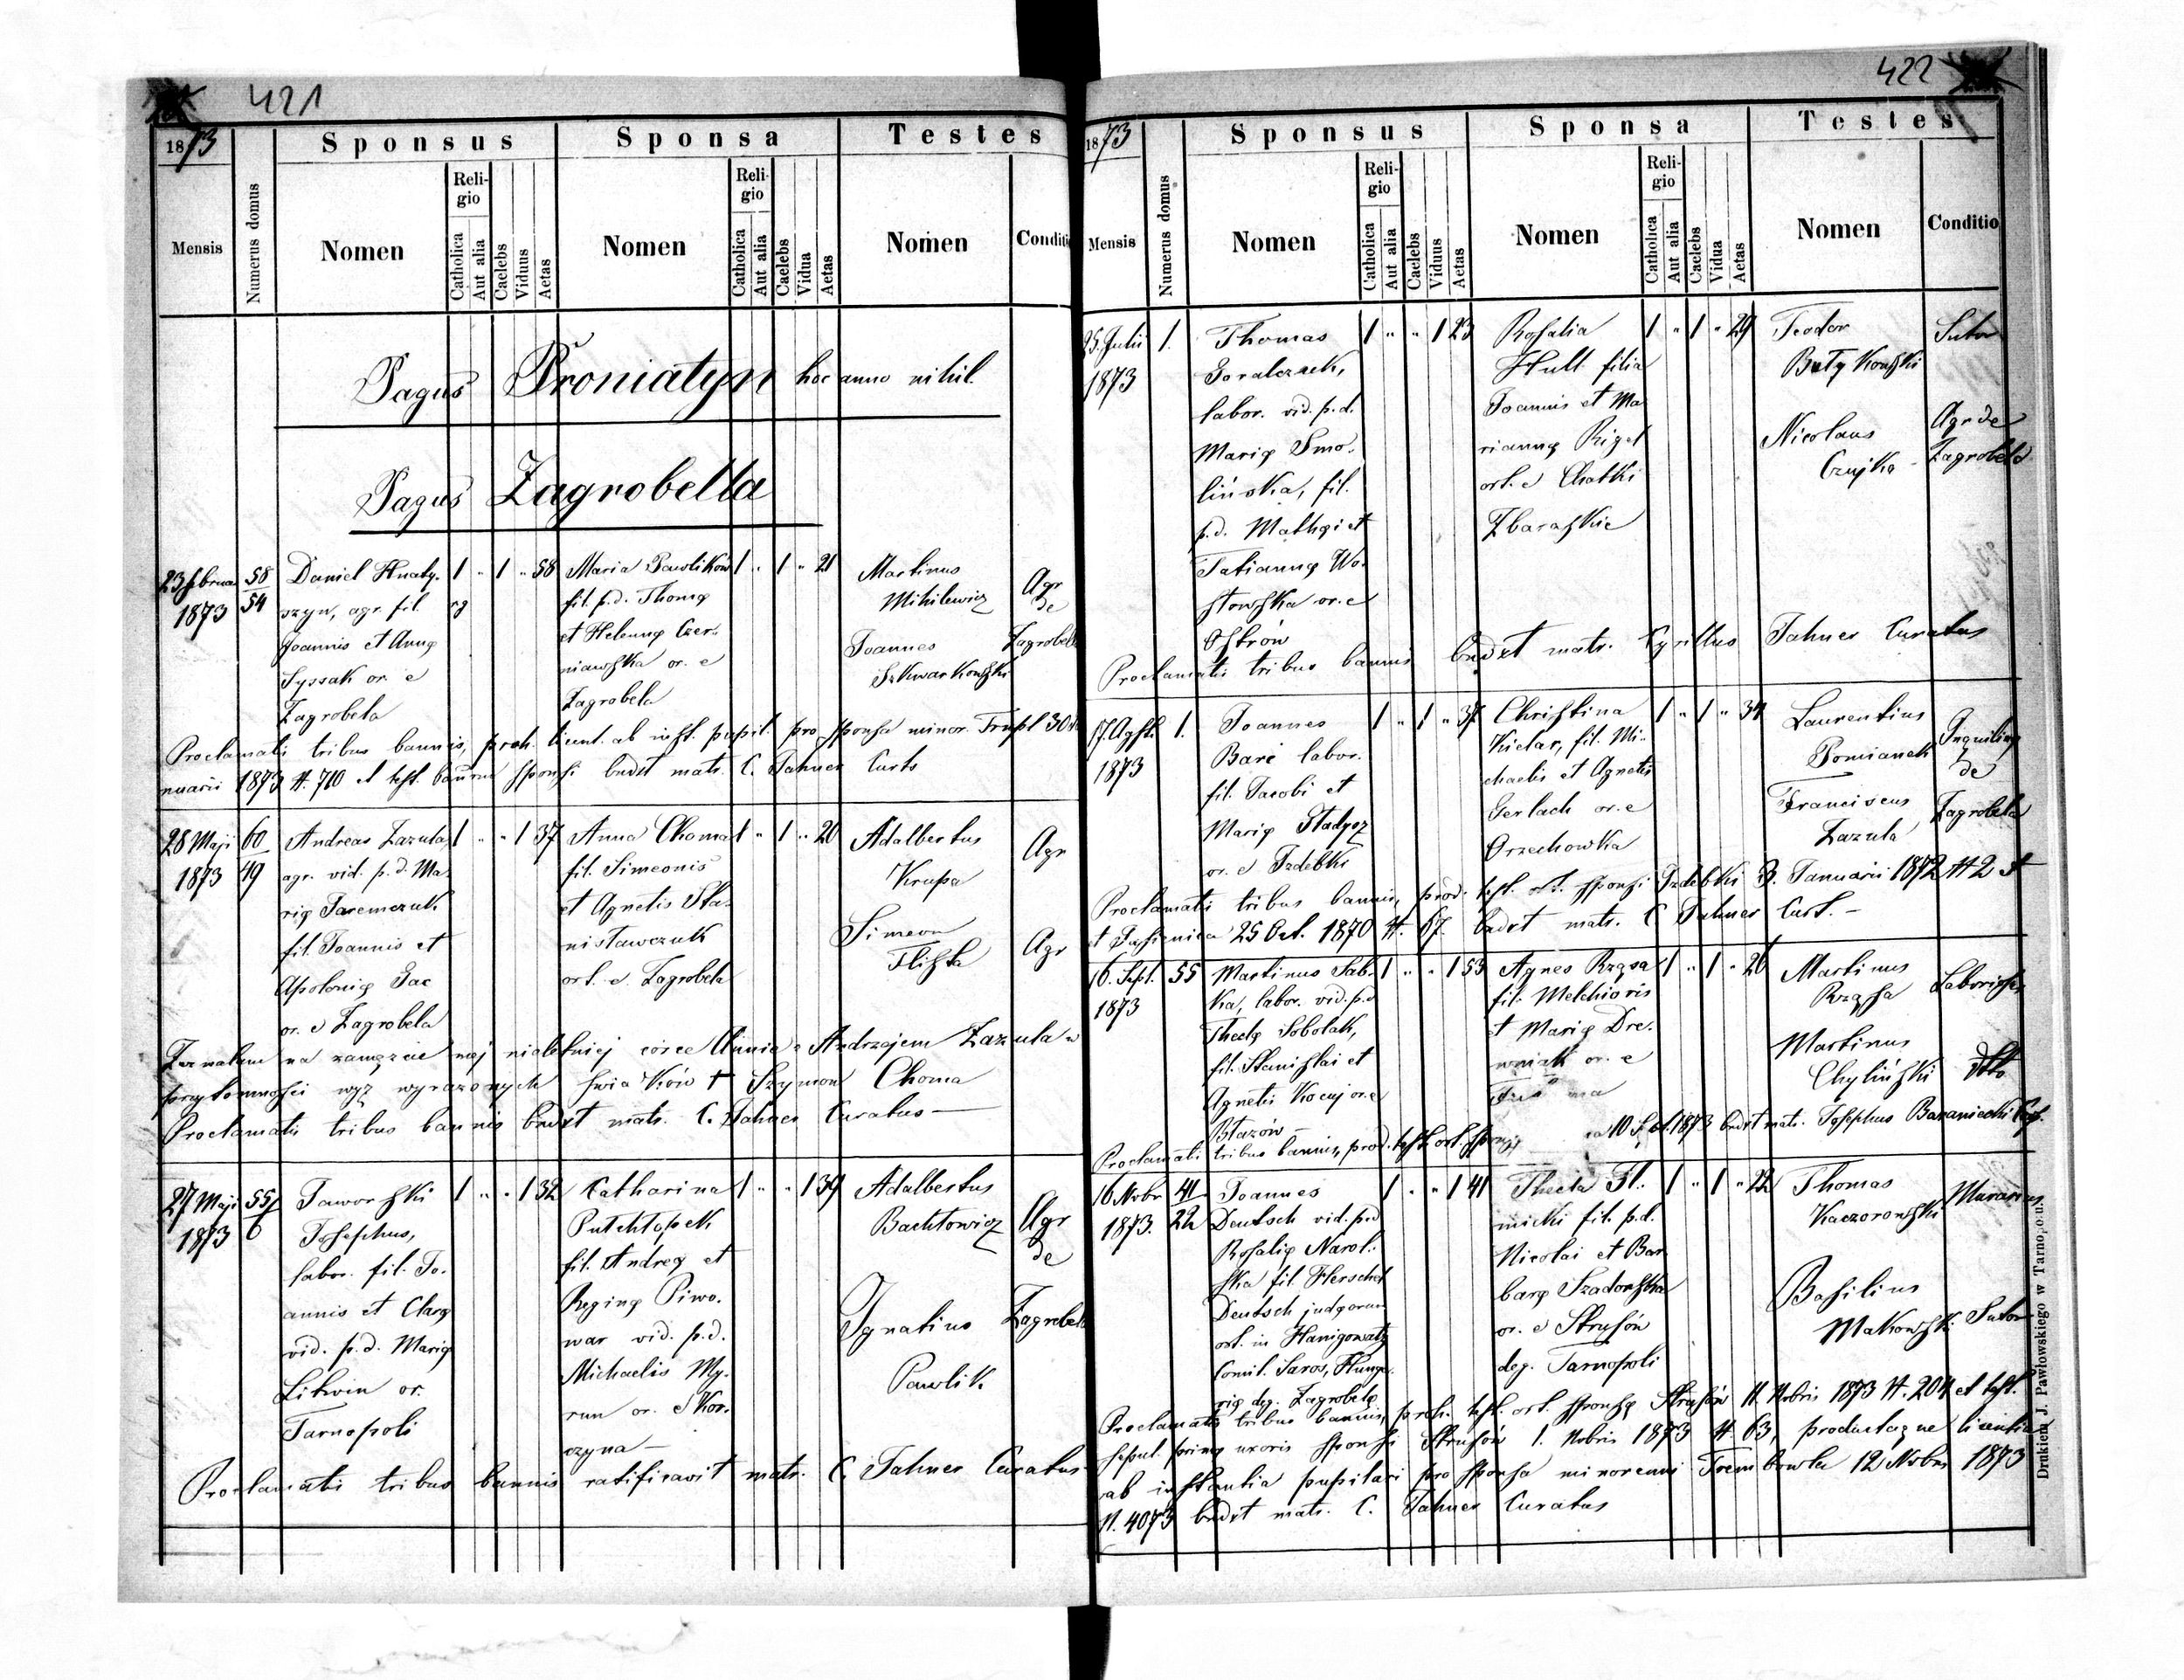 421
1873
Sponsus
Sponsa
Testes
Mensis
Numerus domus
Nomen
Religio
Catholica
Aut alia
Caelebs
Viduus
Aetas
Nomen
Religio
Catholica
Aut alia
Caelebs
Vidua
Aetas
Nomen
Conditio
Pagus Proniatyn hoc anno nihil.
Pagus Zagrobella
23 februa
1873
58
54
Daniel Hnaty-
szyn, agr. fil.
Joannis et Annę
Syssak or. e
Zagrobela
1 " 1 " 58
rg
Maria Pawlików
fil. p.d. Thomę
et Helennę Czer-
niawska or. e
Zagrobela
1 " 1 " 21
Martinus
Mihilewicz
Joannes
Szkwarkowski
Agr
de
Zagrobela
Proclamati tribus bannis, prod. licent. ab inst. pupil. pro sponsa minor. 30
nuarii 1873 N. 710 et test. sponsi bndxt matr. C. Jahner Curts
28 Maji
1873
60
49
Andreas Zazula
agr. vid. p.d. Ma-
rię Jaremczuk
fil. Joannis et
Apolonię Jac
or. e Zagrobela
1 " " 1 37
Anna Choma
fil. Simeonis
et Agnetis Sta-
nisławczuk
ort. e Zagrobela
1 " 1 " 20
Adalbertus
Krupa
Simeon
Fliszta
Agr
Agr
Zezwalam na zamęzcie mej nieletniej córce Annie z Andrzejem Zazula w
przytomności wyż wyrazonych swiadków + Szymon Choma
Proclamatis tribus bannis bndxt matr. C. Jahner Curatus —
27 Maji
1873
55/
6
Jaworski
Josephus,
labor. fil. Jo-
annis et Clarę
vid. p.d. Marię
Litwin or.
Tarnopoli
1 " " 1 32
Catharina
Putchłopek
fil. Andreę et
Reginę Piwo-
war vid. p.d.
Michaelis My-
run or. e Kor-
czyna —
1 " " 1 39
Adalbertus
Bachtowicz
Ignatius
Pawlik
Agr
de
Zagrobela
Proclamati tribus bannis ratificavit matr. C. Jahner Curatus
422
1873
Sponsus
Sponsa
Testes
Mensis
Numerus domus
Nomen
Religio
Catholica
Aut alia
Caelebs
Viduus
Aetas
Nomen
Religio
Catholica
Aut alia
Caelebs
Vidua
Aetas
Nomen
Conditio
25. Julii
1873
1.
Thomas
Goralczuk,
labor. vid. p.d.
Marię Smo-
lińska, fil.
p.d. Mathęi et
Tatiannę Wo-
stowska or. e
Ostrów
1 " " 1 23
Rosalia
Hull filia
Joannis et Ma
riannę Rigel
ort. e Chatki
Zbaraskie
1 " 1 " 29
Teodor
Butykowski
Nicolaus
Czujka
Sutor
Agr de
Zagrobela
Proclamatis tribus bannis bndxt matr. Cyrillus Jahner Curatus
17. Agst.
1873
1.
Joannes
Barć labor.
fil. Jacobi et
Marię Stadycz
or. e Izdebki
1 " 1 " 37
Christina
Kielar, fil. Mi-
chaelis et Agnetis
Gerlach or. e
Orzechowka
1 " 1 " 34
Laurentius
Pomianek
Franciscus
Zazula
Inquilinę
de
Zagrobela
Proclamatis tribus bannis, prod. test. ort. sponsi Izdebki 3. Januarii 1872 N 2 et
et Jasienica 25 Oct. 1870 N. 67. bndxt matr. C Jahner Curt. —
16. Sept.
1873
55
Martinus Sab-
ka, labor. vid. p.d
Theclę Sobolak,
fil. Stanislai et
Agnetis Kocuj or. e
Błazów —
1 " " 1 53
Agnes Rząsa
fil. Melchioris
et Marię Dre-
wniak or. e
1 " 1 " 26
Martinus
Rząsa
Martinus
Chyliński
Laborisses
dtto
Proclamati tribus bannis, prod. test. ort. sponsę 10 1873 bndxt matr. Josephus Baraniecki
16 Nvbr
1873.
41
22
Joannes
Deutsch vid. p.d
Rosalię Narol-
ska fil. Herschel
Deutsch judęorum
ort. in Hanigowatz
Comit. Saros, Hunga-
rię deg. Zagrobelę
1 " " 1 41
Thecla Sl.
micki fil. p.d.
Nicolai et Bar
barę Szadorska
or. e Strusów
deg. Tarnopoli
1 " 1 " 22
Thomas
Kaczorowski
Basilius
Makowski
Murarius
Sutor
Proclamatis tribus bannis, prod. test. ort. sponsę Strusów 11. Nobris 1873 N. 204 et test.
sepul. primę uxoris sponsi Strusów 1. Nobris 1873 N. 63, productaque licentia
ab instantia pupilari pro sponsa minorenni Trembowla 12 Nvbris 1873
N. 4073 bndxt matr. C. Jahner Curatus
Drukiem J. Pawłowskiego w Tarnopolu.